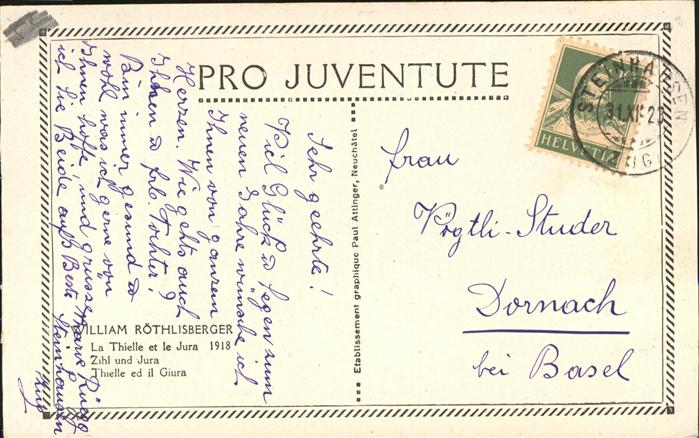 PRO JUVENTUTE
STEINHAUSEN
31.XII.2
HELVETIA
Sehr geehrte!
Viel Glück & Segen zum
neuen Jahre wünsche ich
Ihnen von ganzem
Herzen. Wie gehts auch
Ihnen & frl. Tochter?
Bin immer gesund &
wohl was ich gerne von
Ihnen hoffe, und grüsse
ich Sie Beide aufs Beste
Steinhausen
Zug
Frau
Vögtli-Studer
Dornach
bei Basel
Etablissement graphique Paul Attinger, Neuchâtel
WILLIAM RÖTHLISBERGER
La Thielle et le Jura 1918
Zihl und Jura
Thielle ed il Giura